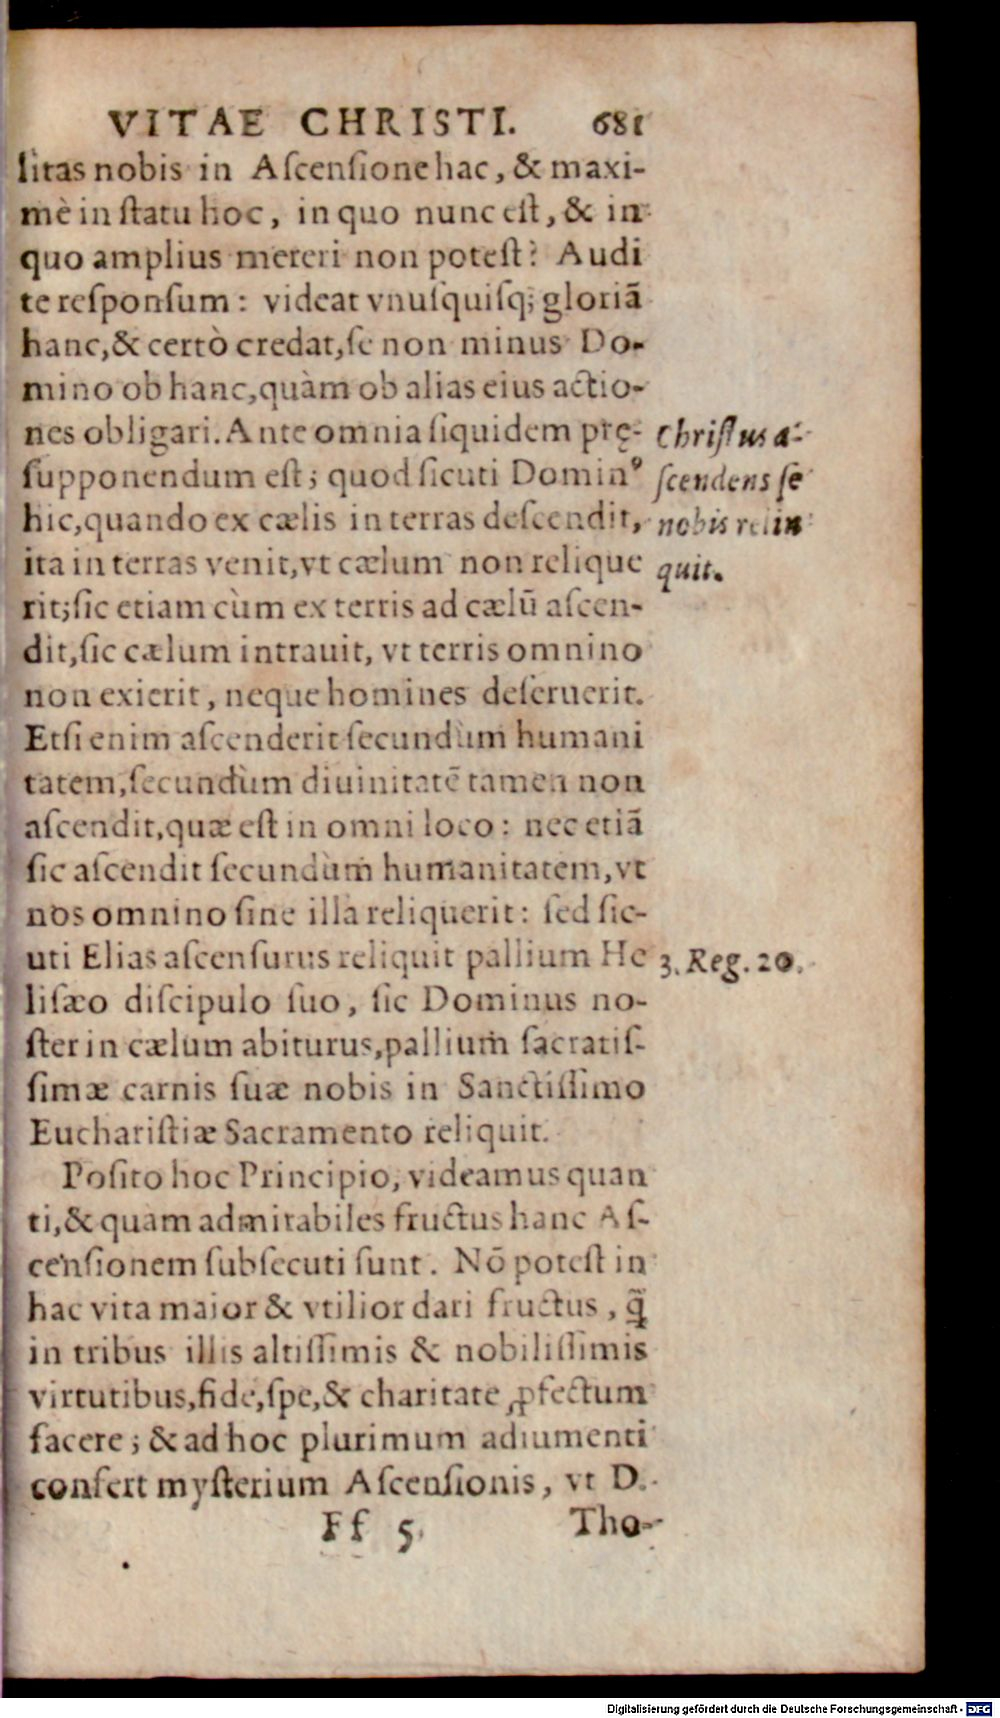 VITAE CHRISTI. 681
litas nobis in Aſcenſione hac, & maxi-
mè in ſtatu hoc, in quo nunc eſt, & in
quo amplius mereri non poteſt? Audi
te reſponſum: videat vnuſquiſq; gloriã
hanc, & certò credat, ſe non minus Do-
mino ob hanc, quàm ob alias eius actio-
nes obligari. Ante omnia ſiquidem prę-
ſupponendum eſt; quod ſicuti Dominꝰ
hic, quando ex cælis in terras deſcendit,
ita in terras venit, vt cælum non relique
rit; ſic etiam cùm ex terris ad cælũ aſcen-
dit, ſic cælum intrauit, vt terris omnino
non exierit, neque homines deſeruerit.
Etſi enim aſcenderit ſecundùm humani
tatem, ſecundùm diuinitatẽ tamen non
aſcendit, quæ eſt in omni loco: nec etiã
ſic aſcendit ſecundùm humanitatem, vt
nos omnino ſine illa reliquerit: ſed ſic-
uti Elias aſcenſurus reliquit pallium He
liſæo diſcipulo ſuo, ſic Dominus no-
ſter in cælum abiturus, pallium ſacratiſ-
ſimæ carnis ſuæ nobis in Sanctiſſimo
Euchariſtiæ Sacramento reliquit.
Poſito hoc Principio, videamus quan
ti, & quam admirabiles fructus hanc Aſ-
cenſionem ſubſecuti ſunt. Nõ poteſt in
hac vita maior & vtilior dari fructus, q̃
in tribus illis altiſſimis & nobiliſſimis
virtutibus, fide, ſpe, & charitate ꝓfectum
facere; & ad hoc plurimum adiumenti
confert myſterium Aſcenſionis, vt D.
Ff 5 Tho-
Chriſtus a-
ſcendens ſe
nobis relin
quit.
3. Reg. 20.
Digitalisierung gefördert durch die Deutsche Forschungsgemeinschaft - DFG